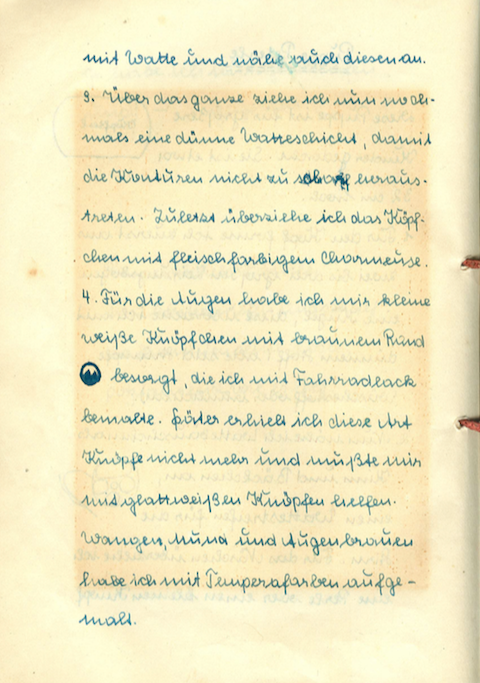 mit Watte und nähe auch diesen an.
3. Über das ganze ziehe ich nun noch-
mals eine dünne Watteschicht, damit
die Konturen nicht zu scharf heraus-
treten. Zuletzt überziehe ich das Köpf-
chen mit fleischfarbigem Charmeuse.
4. Für die Augen habe ich mir kleine
weiße Knöpfchen mit braunem Rand
besorgt, die ich mit Fahrradlack
bemalte. Später erhielt ich diese Art
Knöpfe nicht mehr und mußte mir
mit glattweißen Knöpfen helfen.
Wangen, Mund und Augenbrauen
habe ich mit Temperafarben aufge-
malt.